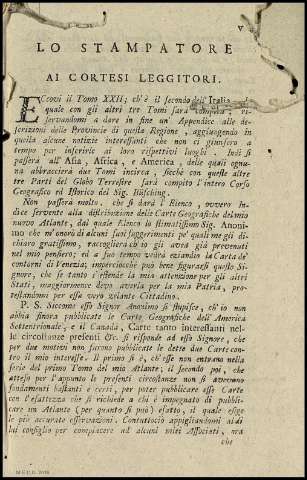 V
LO STAMPATORE
AI CORTESI LEGGITORI.
ECcovi il Tomo XXII; ch'è il secondo dell'Italia
quale con gli altri tre Tomi sarà compita; ri-
servandomi a dare in fine un' Appendice alle de-
scrizioni delle Provincie di questa Regione, aggiungendo in
questa alcune notizie interessanti che non ci giunsero a
tempo per inserirle ai loro rispettivi luoghi. Indi si
passerà all' Asia, Africa, e America, delle quali ognu-
na abbraccierà due Tomi incirca, sicchè con quelle altre
tre Parti del Globo Terrestre sarà compito l'intero Corso
Geografico ed Istorico del Sig. Büsching.
Non passerà molto, che si darà l'Elenco, ovvero In-
dice servente alla distribuzione delle Carte Geografiche del mio
nuovo Atlante, dal quale Elenco lo stimatissimo Sig. Anoni-
mo che m'onorò di alcuni suoi suggerimenti pe' quali me gli di-
chiaro gratissimo, raccoglierà ch'io gli avea già prevenuti
nel mio pensiero; ed a suo tempo vedrà eziandio la Carta de'
contorni di Venezia; imperciocchè può bene figurarsi questo Si-
gnore, che se tanto s'estende la mia attenzione per gli altri
Stati, maggiormente devo averla per la mia Patria, pro-
testandomi per essa vero zelante Cittadino.
P. S. Siccome esso Signor Anonimo si stupisce, ch'io non
abbia finora pubblicate le Carte Geografiche dell'America
Settentrionale, e il Canadà, Carte tanto interessanti nel-
le circostanze presenti &c. si risponde ad esso Signore, che
per due motivi non furono pubblicate le dette due Carte con-
tro il mio interesse. Il primo si è, ch'esse non entrano nella
serie del primo Tomo del mio Atlante; il secondo poi, che
atteso per l'appunto le presenti circostanze non si avevano
fondamenti bastanti e certi, per poter pubblicare esse Carte
con l'esattezza che si richiede a chi è impegnato di pubbli-
care un Atlante (per quanto si può) esatto, il quale esige
le più accurate osservazioni. Contuttociò appigliandomi al di
lui consiglio per compiacere ad alcuni miei Associati, ma
che